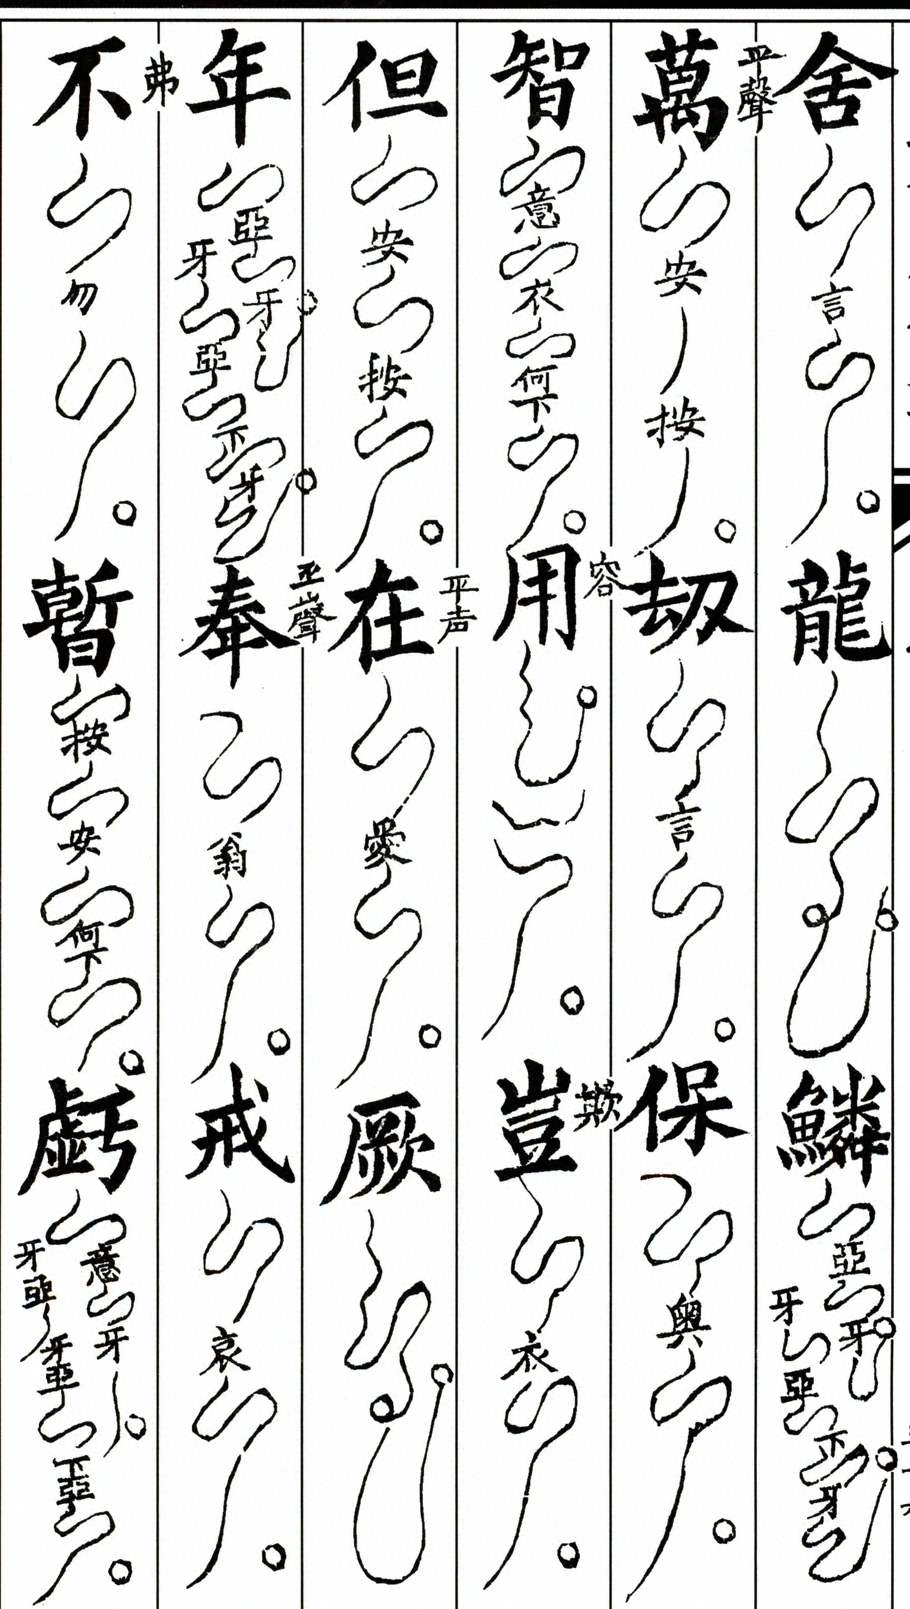 舍言龍鱗亞牙牙亞下牙
平聲萬安按劫言保奥
智意衣何下用容豈欺衣
但安按在平声愛厥
年亞牙牙亞下牙奉平聲翁戒哀
不弗勿暫按安何下虧意牙牙亞牙亞下亞